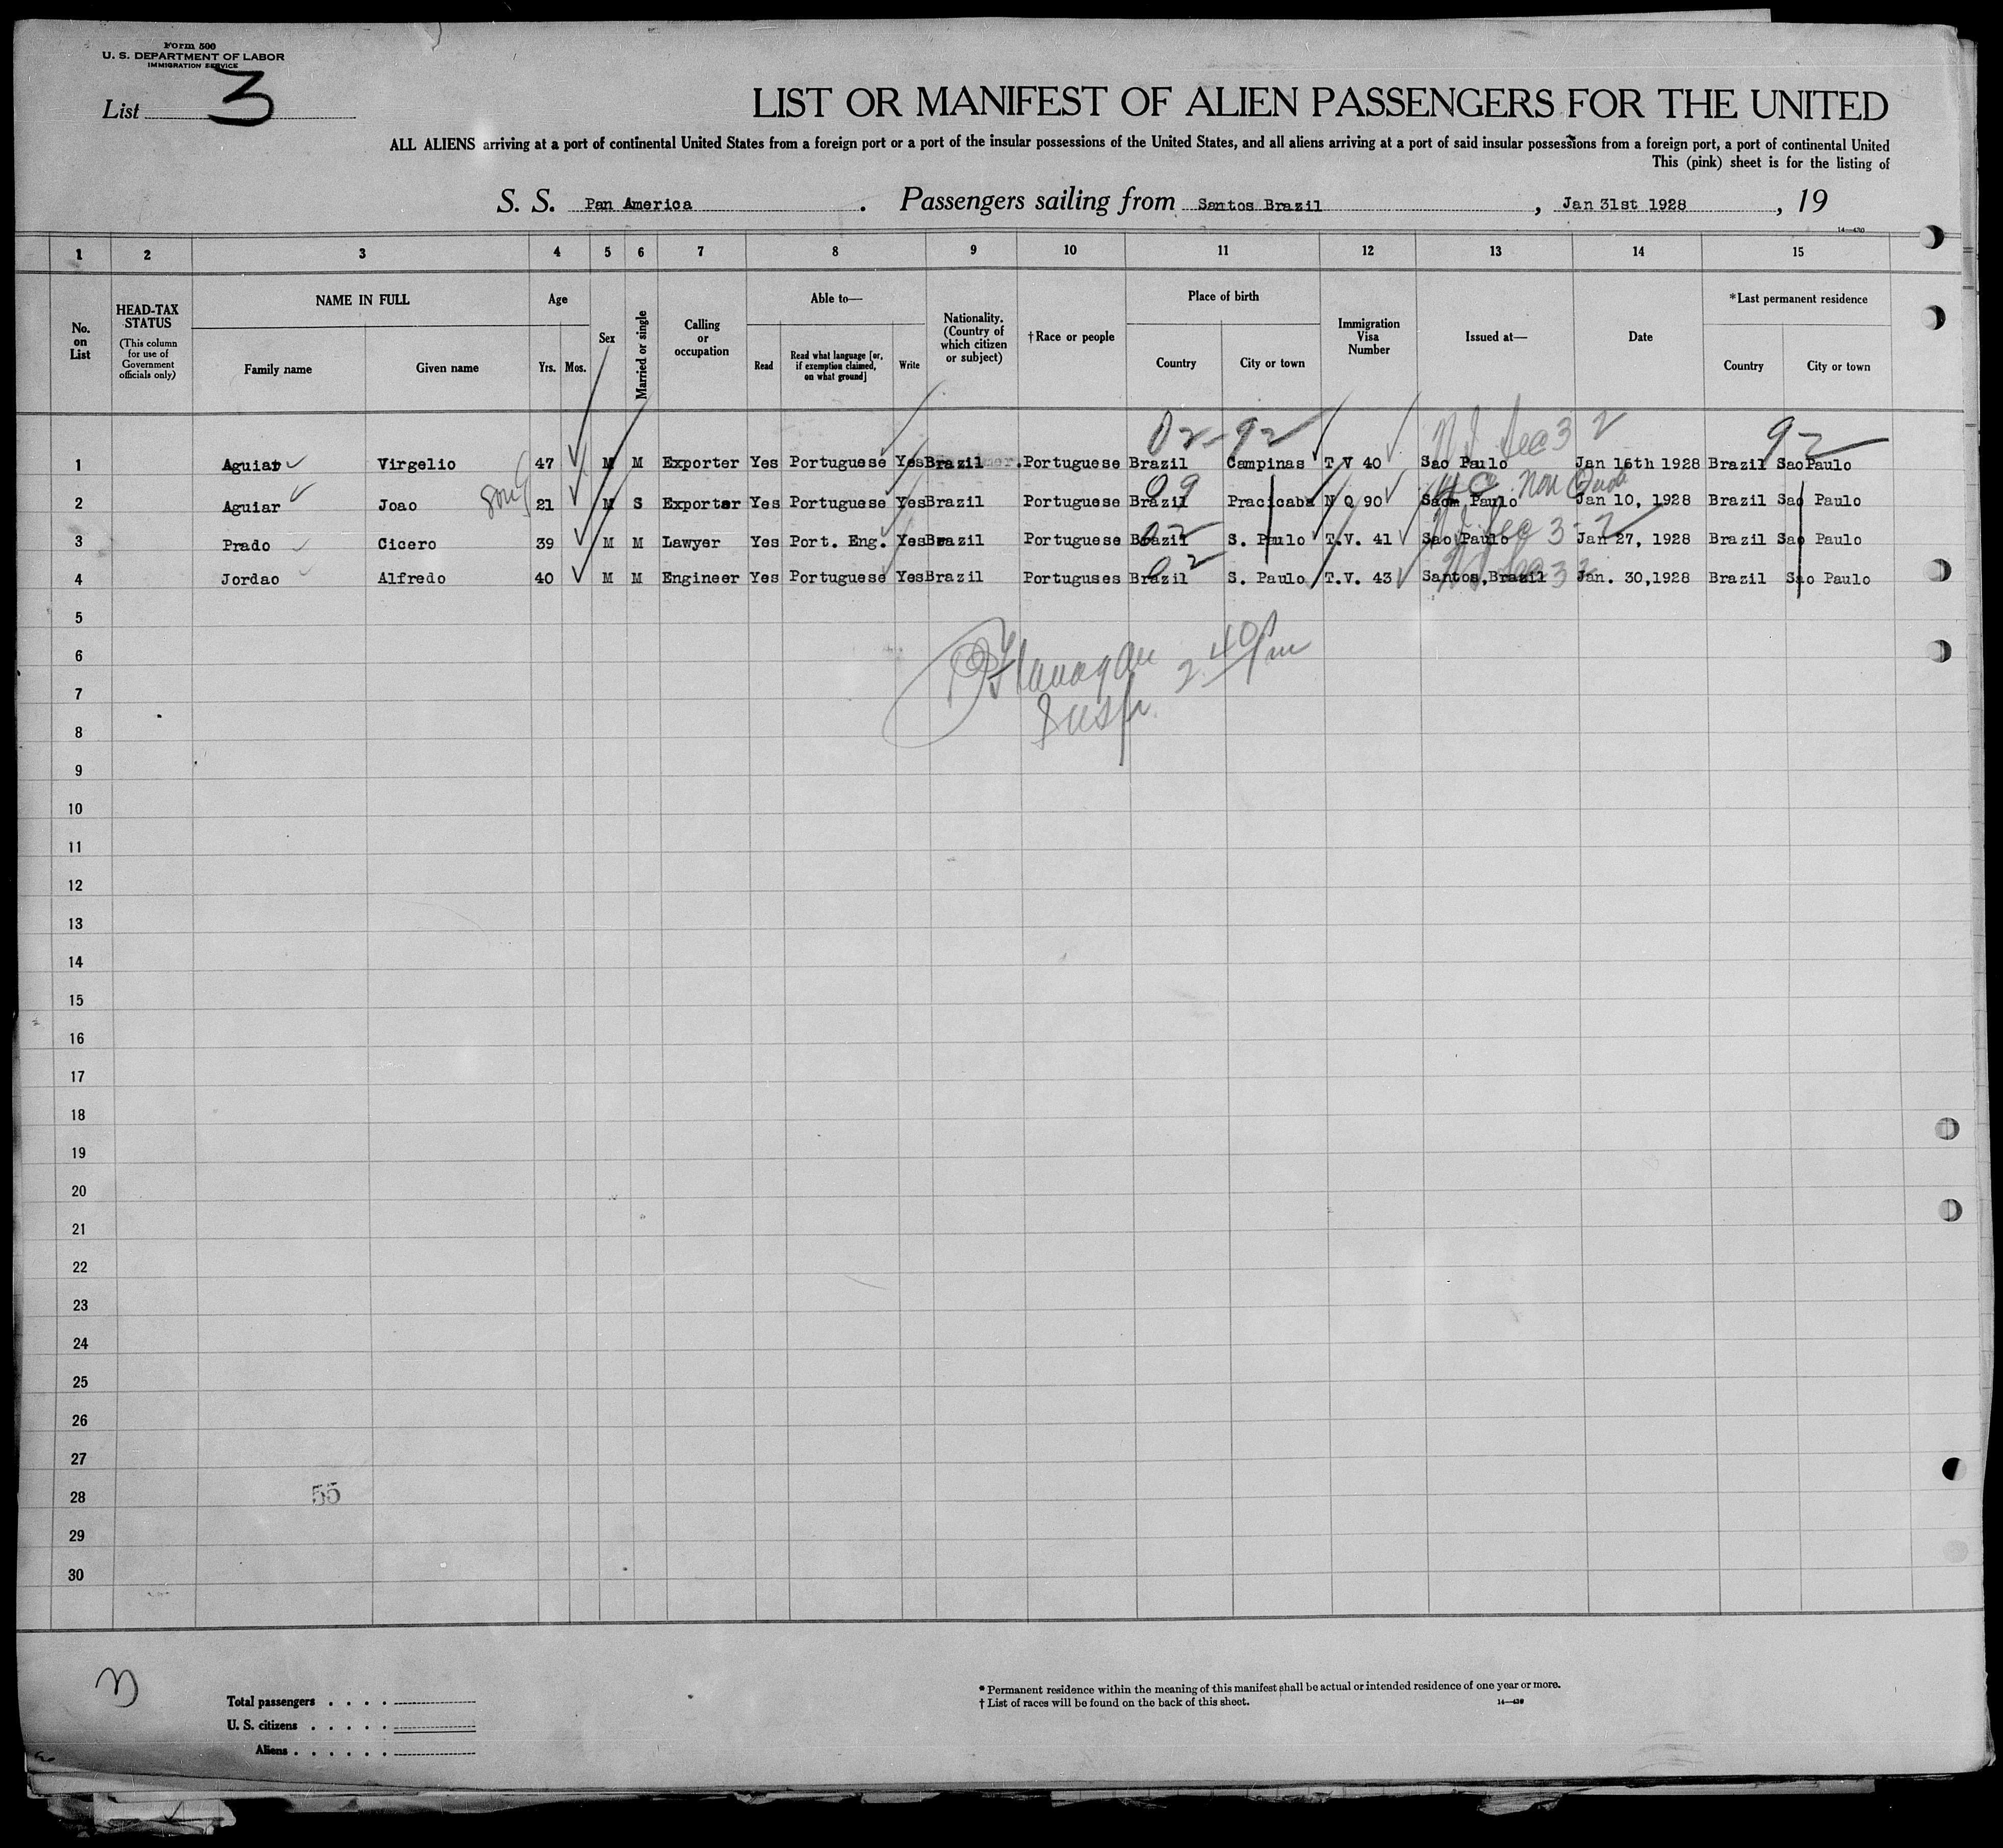 Form 500
U. S. DEPARTMENT OF LABOR
IMMIGRATION SERVICE
List 3
LIST OR MANIFEST OF ALIEN PASSENGERS FOR THE UNITED
ALL ALIENS arriving at a port of continental United States from a foreign port or a port of the insular possessions of the United States, and all aliens arriving at a port of said insular possessions from a foreign port, a port of continental United
This (pink) sheet is for the listing of
S. S. Pan America. Passengers sailing from Santos Brazil, Jan 31st 1928, 19
14—430
1 2 3 4 5 6 7 8 9 10 11 12 13 14 15
No. on List
HEAD-TAX STATUS
(This column for use of Government officials only)
NAME IN FULL
Family name Given name
Age
Yrs. Mos.
Sex
Married or single
Calling or occupation
Able to—
Read
Read what language [or, if exemption claimed, on what ground]
Write
Nationality. (Country of which citizen or subject)
†Race or people
Place of birth
Country City or town
Immigration Visa Number
Issued at—
Date
*Last permanent residence
Country City or town
02-92 3 2 92
1 Aguiar Virgelio 47 M M Exporter Yes Portuguese Yes Brazil Portuguese Brazil Campinas T V 40 Sao Paulo Jan 16th 1928 Brazil SaoPaulo
09 Non Quota
2 Aguiar Joao 21 M S Exporter Yes Portuguese Yes Brazil Portuguese Brazil Pracicaba N Q 90 Paulo Jan 10, 1928 Brazil Sao Paulo
02 3-2
3 Prado Cicero 39 M M Lawyer Yes Port. Eng. Yes Brazil Portuguese Brazil S. Paulo T.V. 41 Sao Paulo Jan 27, 1928 Brazil Sao Paulo
02
4 Jordao Alfredo 40 M M Engineer Yes Portuguese Yes Brazil Portuguses Brazil S. Paulo T.V. 43 Santos,Brazil Jan. 30,1928 Brazil Sao Paulo
5
6
Flanagan 2 40 Pm
7
Insp.
8
9
10
11
12
13
14
15
16
17
18
19
20
21
22
23
24
25
26
27
28 55
29
30
Total passengers . . . .
U. S. citizens . . . . .
Aliens . . . . . .
* Permanent residence within the meaning of this manifest shall be actual or intended residence of one year or more.
† List of races will be found on the back of this sheet.
14—430